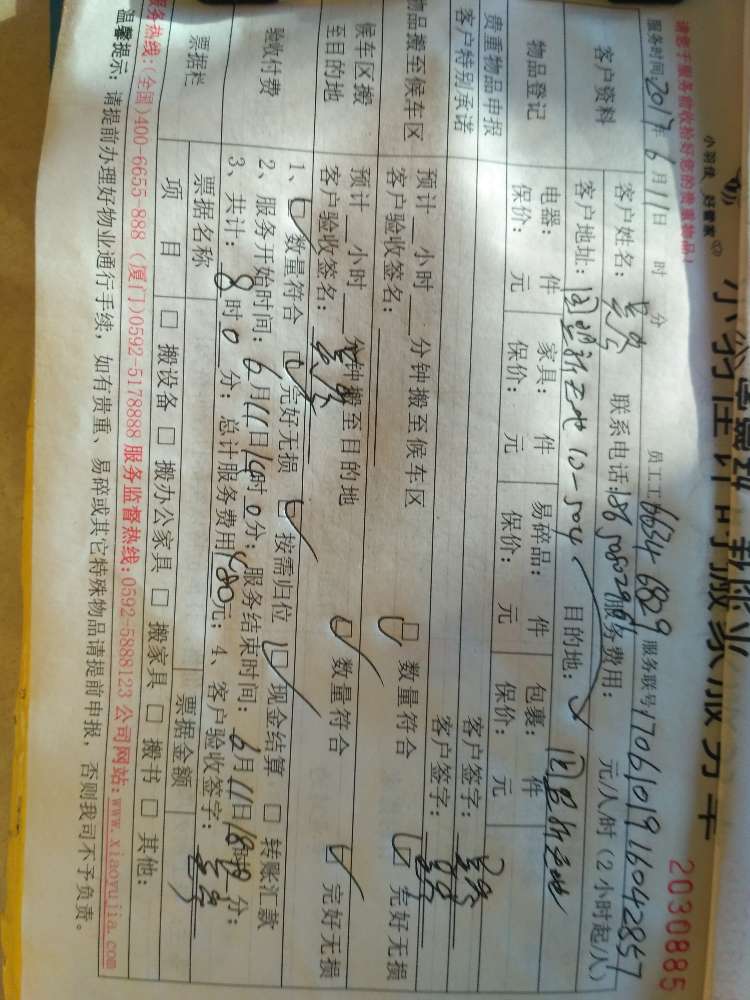 小羽佳 好管家
2030885
请您于服务前收拾好您的贵重物品！
员工工 6634 6829 服务联号:1706101916042857
服务时间:2017年6月11日 时 分
客户资料
客户姓名: 联系电话: 服务费用: 元/人/时（2小时起/人）
客户地址: 10-504 目的地:
物品登记
电器: 件 家具: 件 易碎品: 件 包裹: 件
保价: 元 保价: 元 保价: 元 保价: 元
贵重物品申报 客户签字:
客户特别承诺 客户签字:
物品搬至候车区
预计 小时 分钟搬至候车区 数量符合 完好无损
客户验收签名:
候车区搬至目的地
预计 小时 分钟搬至目的地 数量符合 完好无损
客户验收签名:
验收付费
1、 数量符合 完好无损 按需归位 现金结算 转账汇款
2、服务开始时间: 6月11日10时0分; 服务结束时间: 6月11日18时 分;
3、共计: 8时0分; 总计服务费用 元; 4、客户验收签字:
票据栏
票据名称 票据金额
项 目 搬设备 搬办公家具 搬家具 搬书 其他:
服务热线:(全国)400-6655-888 (厦门)0592-5178888 服务监督热线:0592-5888123 公司网站:www.xiaoyujia.com
温馨提示: 请提前办理好物业通行手续, 如有贵重、易碎或其它特殊物品请提前申报, 否则我司不予负责。